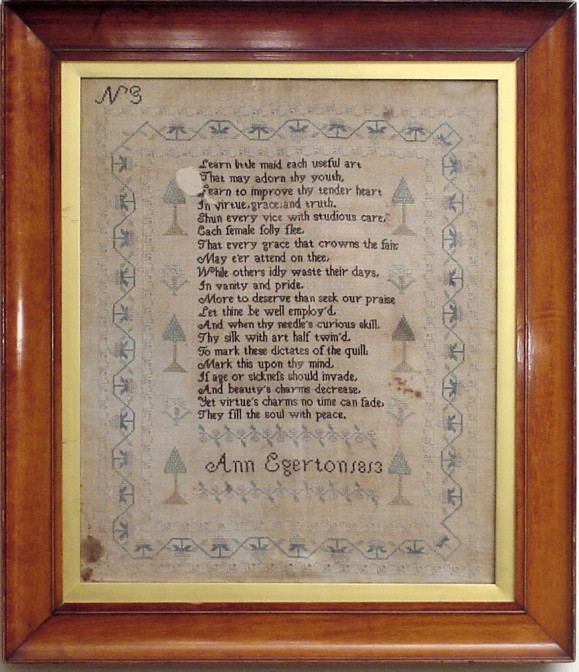 N3
Learn little maid each useful art
That may adorn thy youth,
Learn to improve thy tender heart
In virtue, grace, and truth.
Shun every vice with studious care,
Each female folly flee,
That every grace that crowns the fair
May e'er attend on thee,
While others idly waste their days,
In vanity and pride.
More to deserve than seek our praise
Let thine be well employ'd.
And when thy needle's curious skill.
Thy silk with art half twin'd,
To mark these dictates of the quill,
Mark this upon thy mind,
If age or sickneſs should invade,
And beauty's charms decrease,
Yet virtue's charms no time can fade,
They fill the soul with peace.
Ann Egerton 1813